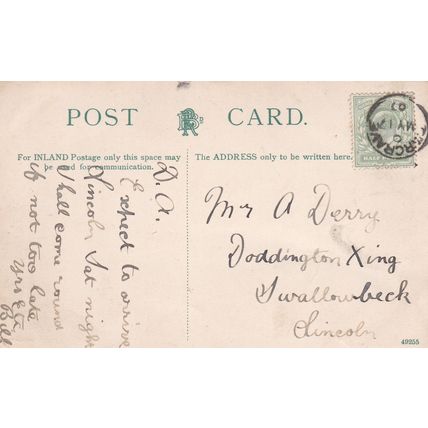 POST CARD.
For INLAND Postage only this space may
be used for communication.
The ADDRESS only to be written here.
D. A.
Expect to arrive
Lincoln Sat night
Shall come round
if not too late
Yrs Etc
Bill
Mr A Derry
Doddington Xing
Swallowbeck
Lincoln
MY 17
07
HALF
49255